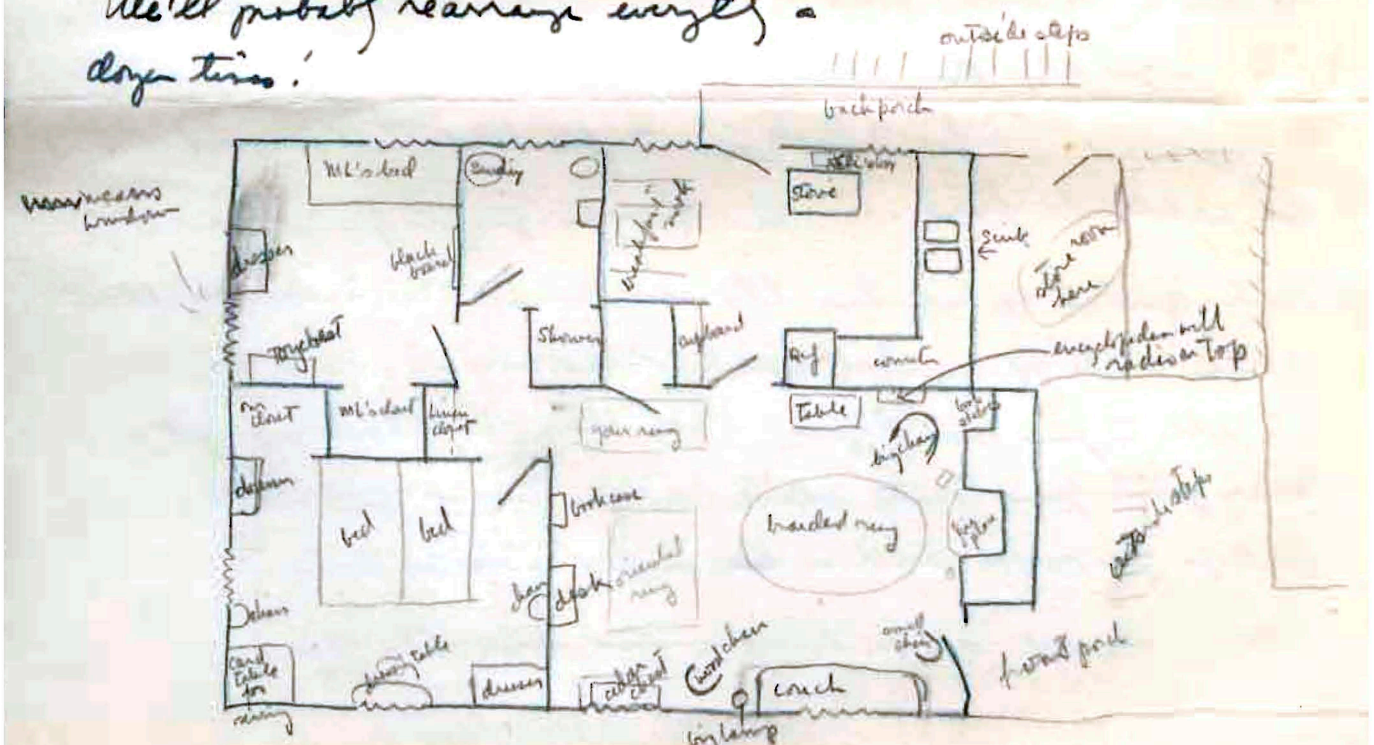 We'll probably rearrange everything a
dozen times!
outside steps
back porch
means
window
ML's bed
laundry
breakfast
nook
stove
dresser
black
board
sink
store room
here
toy chest
shower
cupboard
Ref
counter
encyclopedia with
radio on top
our
closet
ML's closet
linen
closet
your rug
table
book
shelves
big chair
dresser
bed
bed
bookcase
oriental
rug
braided rug
fire
place
outside steps
chair
chair
desk
card
table
for
sewing
table
dresser
cedar
chest
wood chair
small
chair
couch
front porch
big lamp